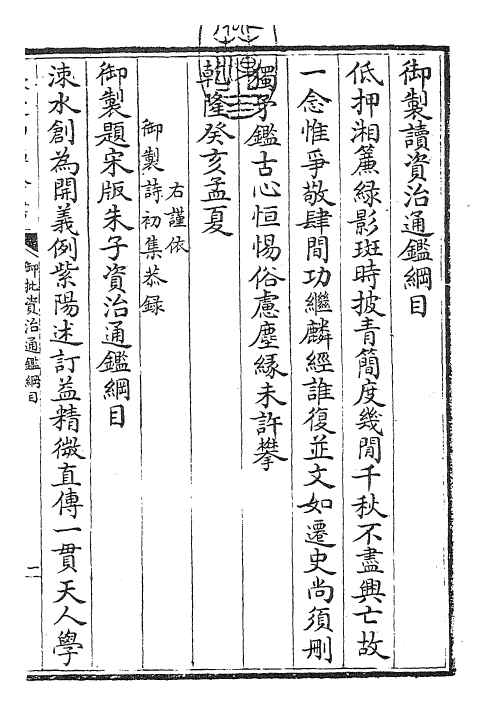 御製讀資治通鑑綱目
低押湘簾綠影斑時披青簡度幾閒千秋不盡興亡故
一念惟爭敬肆間功繼麟經誰復並文如遷史尚須刪
獨予鑑古心恒惕俗慮塵緣未許攀
乾隆癸亥孟夏
右謹依
御製詩初集恭録
御製題宋版朱子資治通鑑綱目
涑水創為開義例紫陽述訂益精微直傳一貫天人學
御批資治通鑑綱目
二